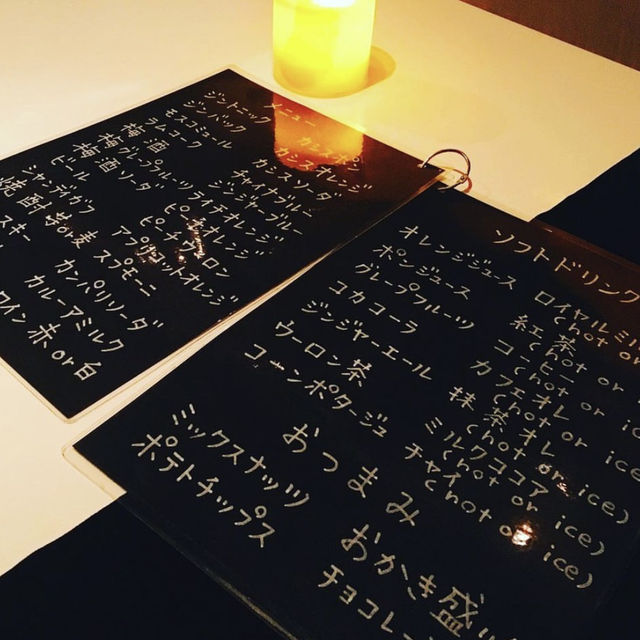 メニュー
ジントニック
ジンバック
モスコミュール
ラムコーク
梅酒
梅酒ソーダ
ビール
焼酎 芋or麦
カシスオレンジ
カシスソーダ
チャイナブルー
ジンジャーブルー
ライチオレンジ
ピーチオレンジ
ピーチウーロン
アプリコットオレンジ
スプモーニ
カンパリソーダ
カルーアミルク
ワイン 赤or白
ソフトドリンク
オレンジジュース
ポンジュース
グレープフルーツ
コカコーラ
ジンジャーエール
ウーロン茶
コーンポタージュ
ロイヤルミル
(hot or
紅茶
(hot or ice
コーヒー
(hot or ice
カフェオレ
(hot or ice
抹茶オレ
(hot or ice)
ミルクココア
(hot or ice)
チャイ
(hot or ice)
おつまみ
ミックスナッツ
ポテトチップス
おかき盛
チョコレー